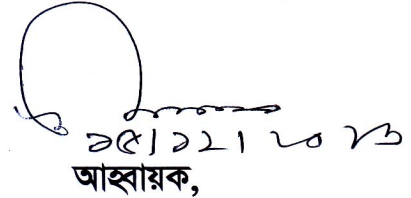 ১৫/১২/২০২৩
আহবায়ক,